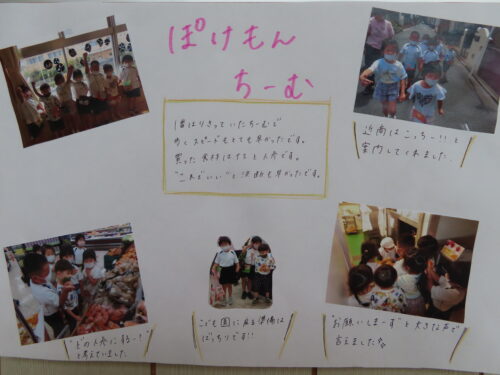 ぽけもん
ちーむ
1番はりきっていたちーむで
歩くスピードもとても早かったです。
買った食材はなすと人参です。
"これがいい"と決断も早かったです。
近商はこっちー!!と
案内してくれました。
"どの人参にするー?"
と考えていました
こども園に戻る準備は
ばっちりです!!
"お願いしまーす"と大きな声で
言えました